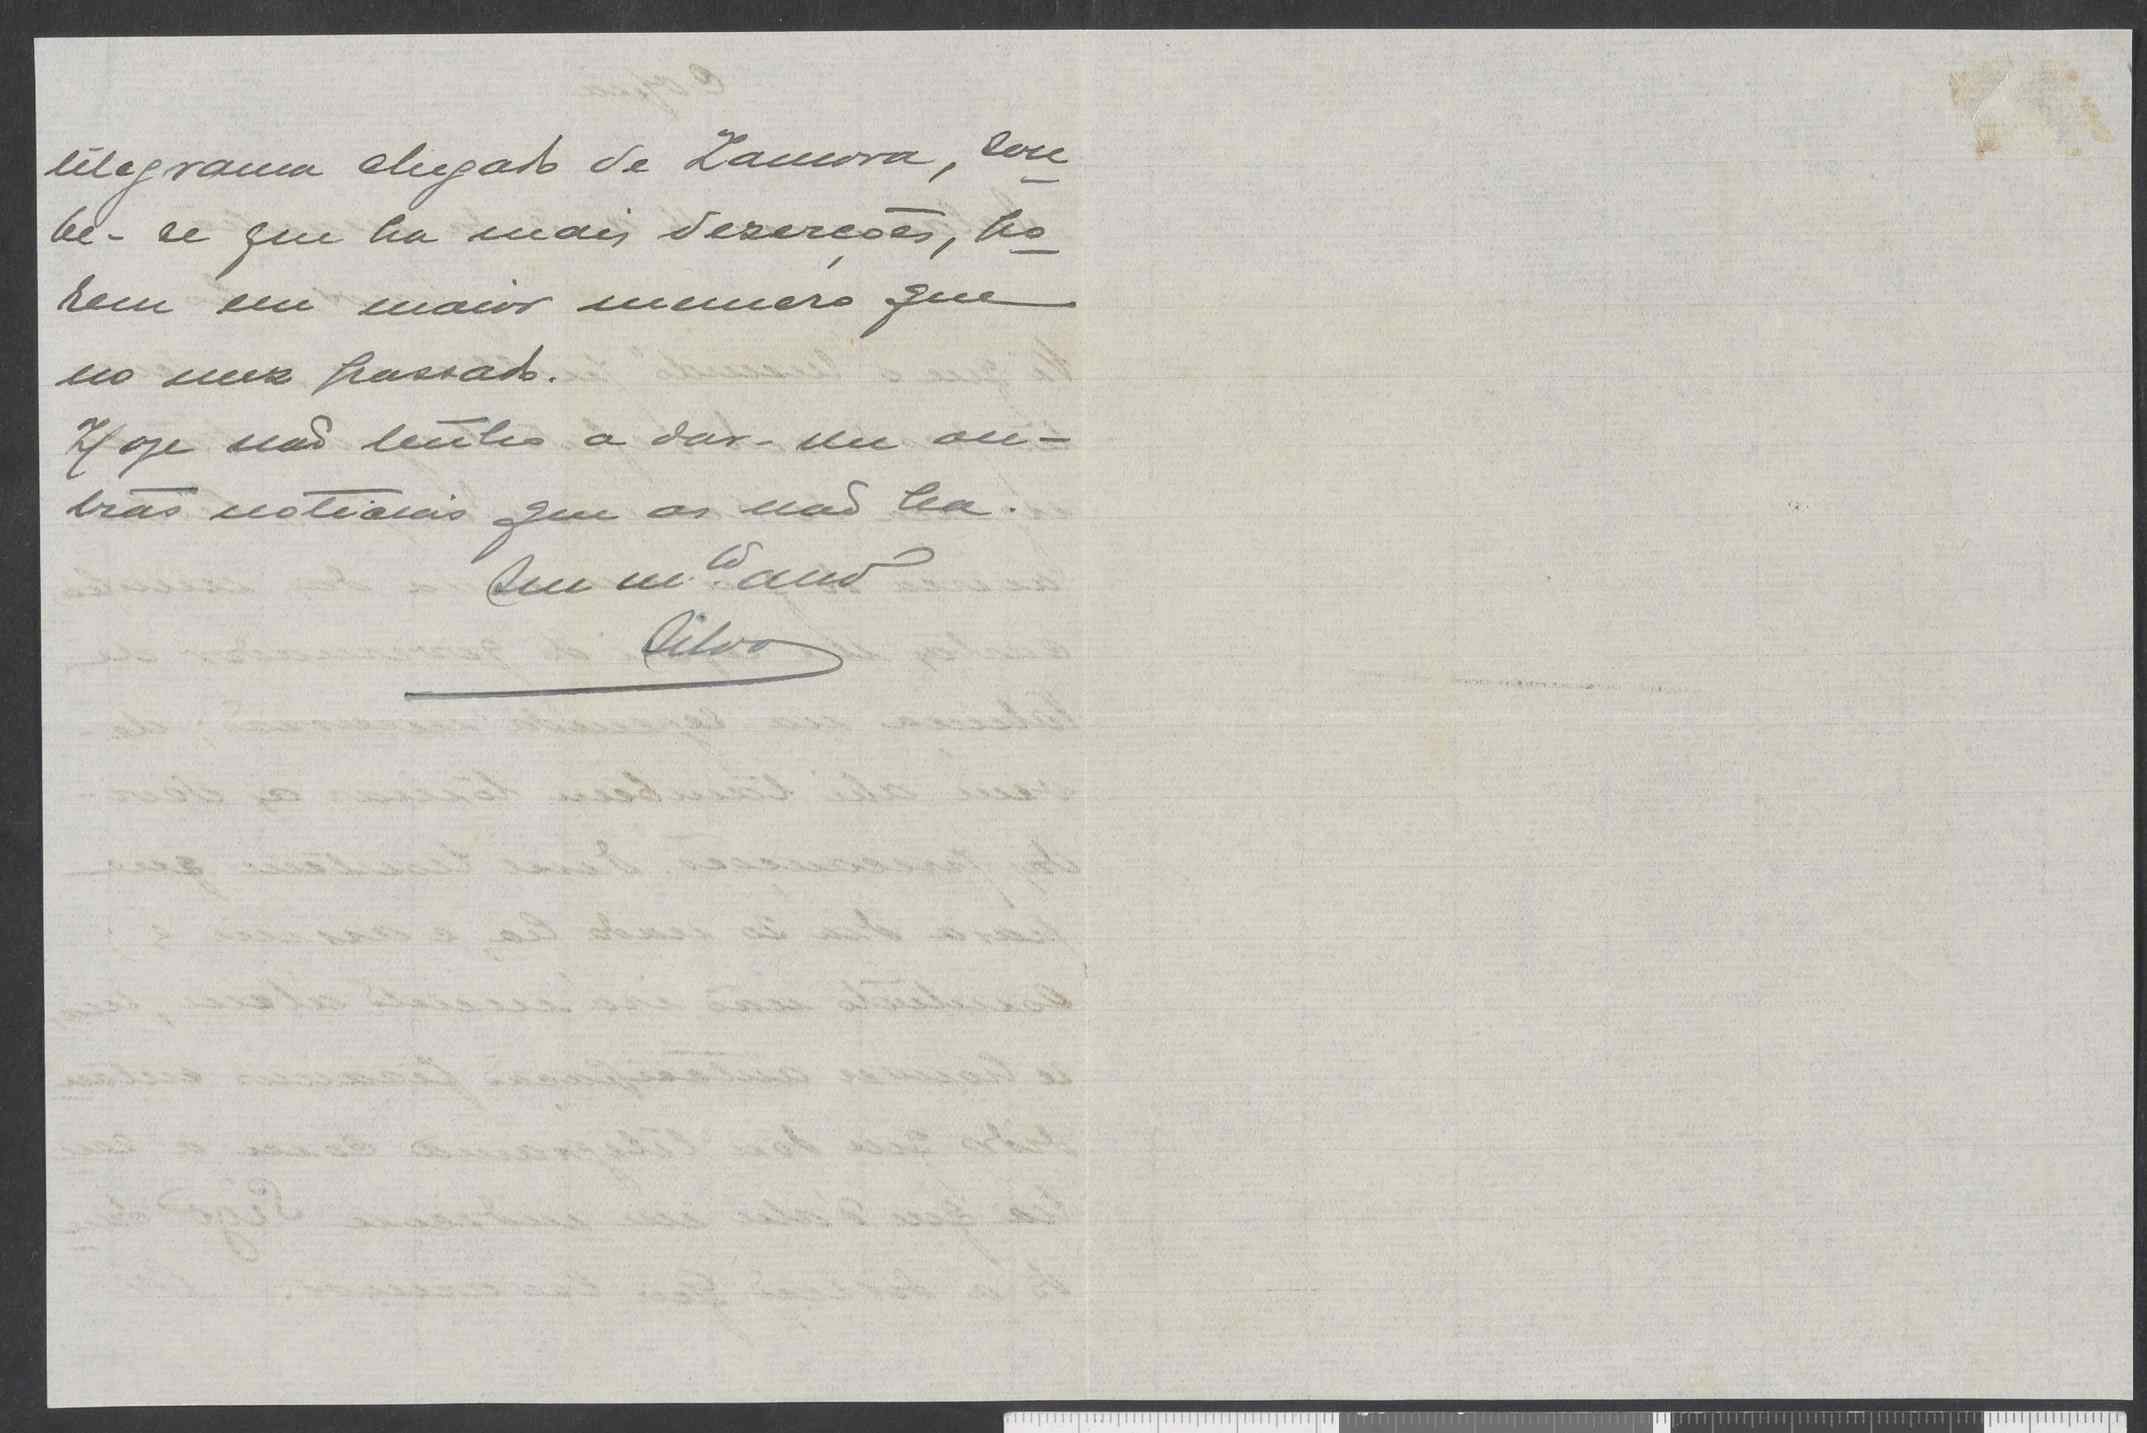 telegrama chegado de Zamora, sou
be-se que ha mais dezerções, po
rem em maior numero que
no mez passado.
Hoje não tenho a dar-me ou-
tras noticias que as não ha.
Seu m.to amo
Silva